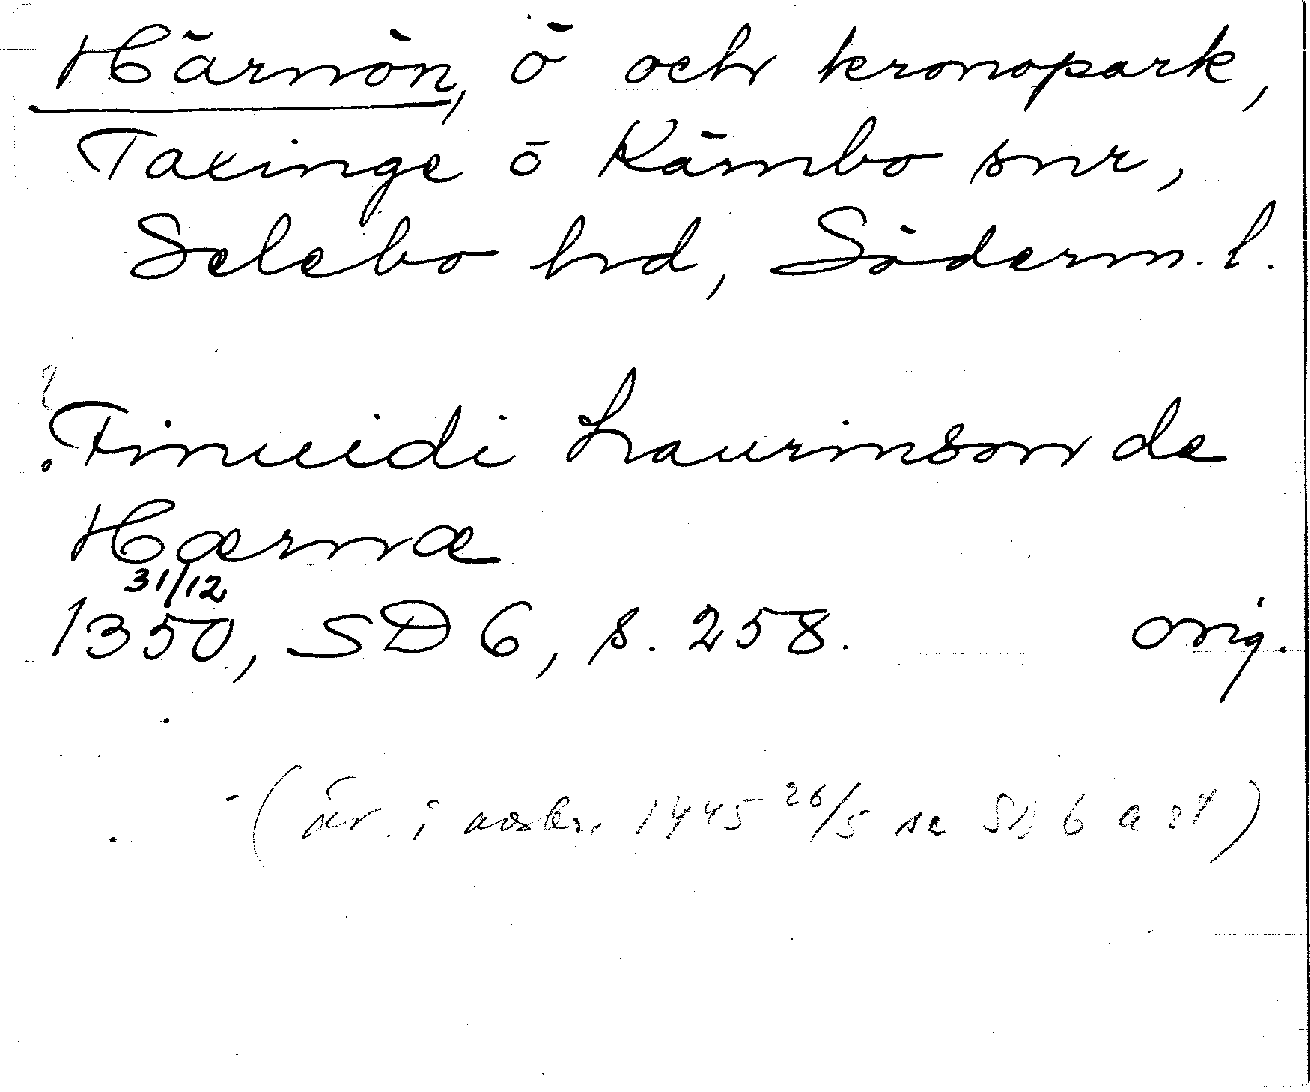 Härnön, ö och kronopark,
Taxinge o Kärnbo snr,
Selebo hd, Söderm. l.
Finuidi Laurinson de
Hærnæ
31/12
1350, SD 6, s. 258. orig.
(äv. i avskr. 1445 26/5 se SD 6 a st)